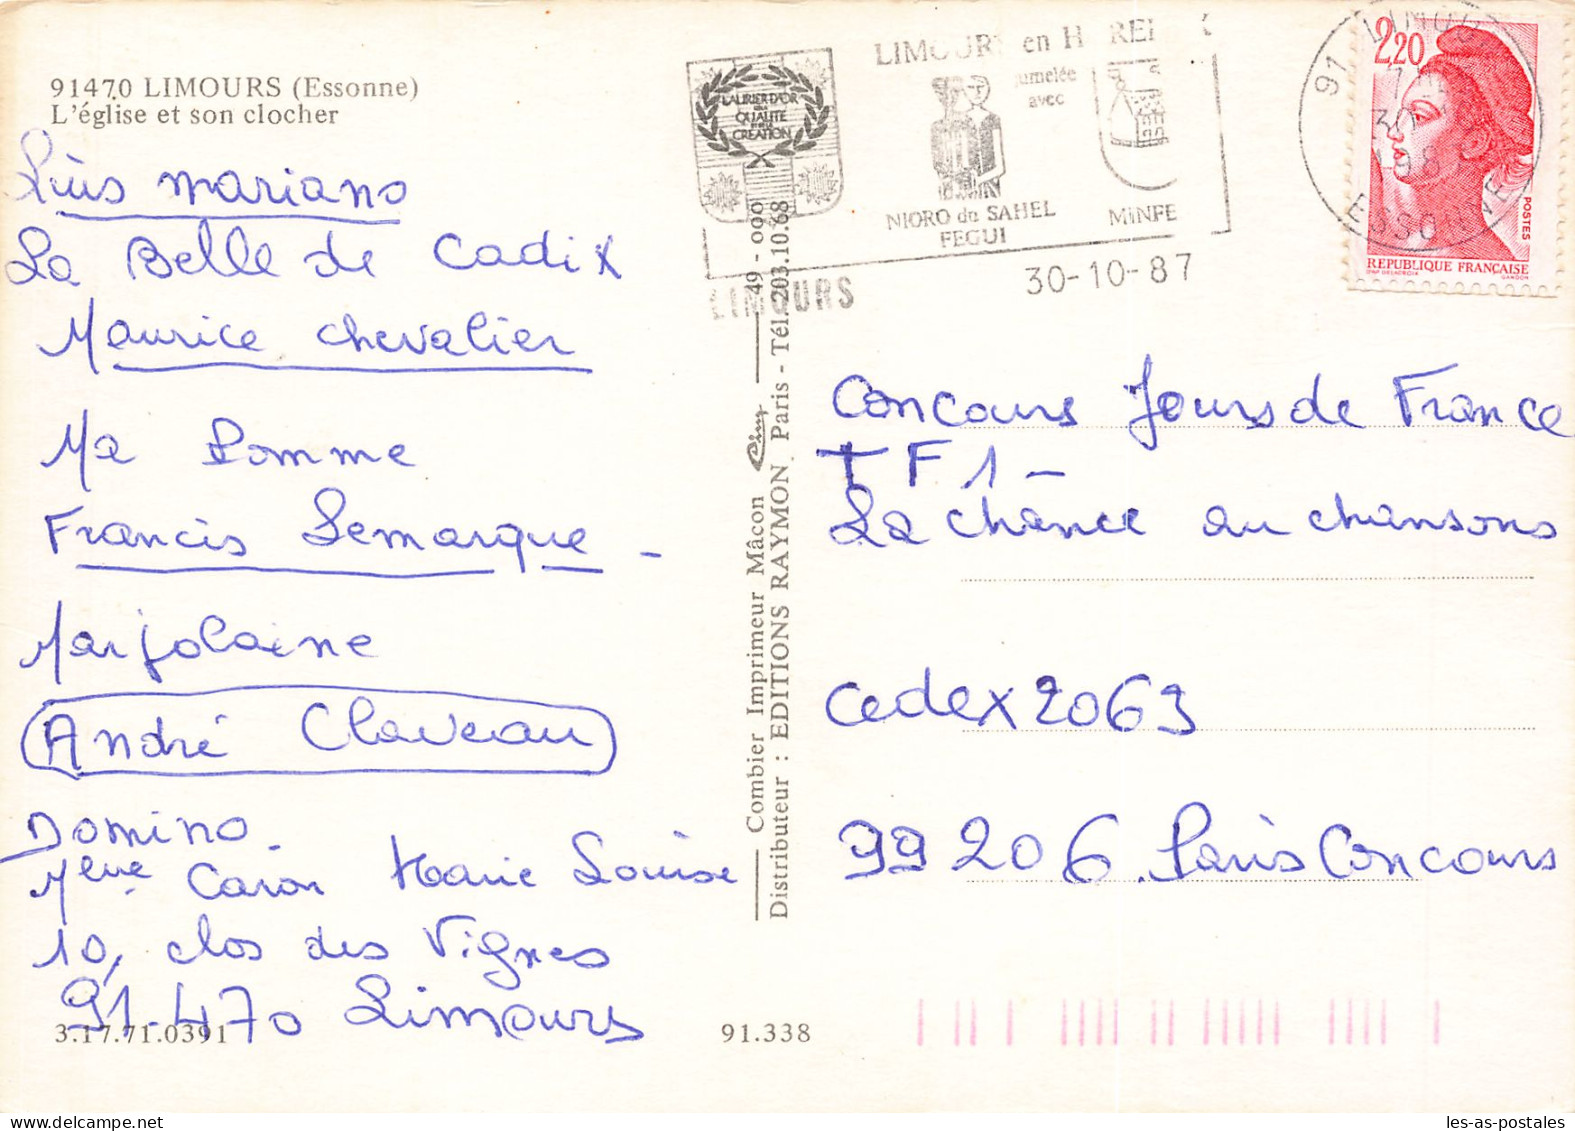 91470 LIMOURS (Essonne)
L'église et son clocher
Luis mariano
La Belle de Cadix
Maurice chevalier
Ma Pomme
Francis Lemarque -
Marjolaine
André Claveau
Domino
Mme Caron Marie Louise
10, clos des Vignes
91-470 Limours
3.17.71.0391
91.338
Combier Imprimeur Mâcon Cim 49 - 000
Distributeur : EDITIONS RAYMON, Paris - Tél. 203.10.68
LAURIER D'OR
DE LA
QUALITE
ET DE LA
CREATION
LIMOURS en HUREPOIX
jumelée
avec
NIORO du SAHEL
FEGUI
MINFE
LIMOURS
30-10-87
91 LIMOURS
30
ESSONNE
2,20
POSTES
REPUBLIQUE FRANÇAISE
D'AP DELACROIX
GANDON
Concours Jours de France
TF1 -
La chance au chansons
Cedex 2063
99206 Paris Concours
les-as-postales